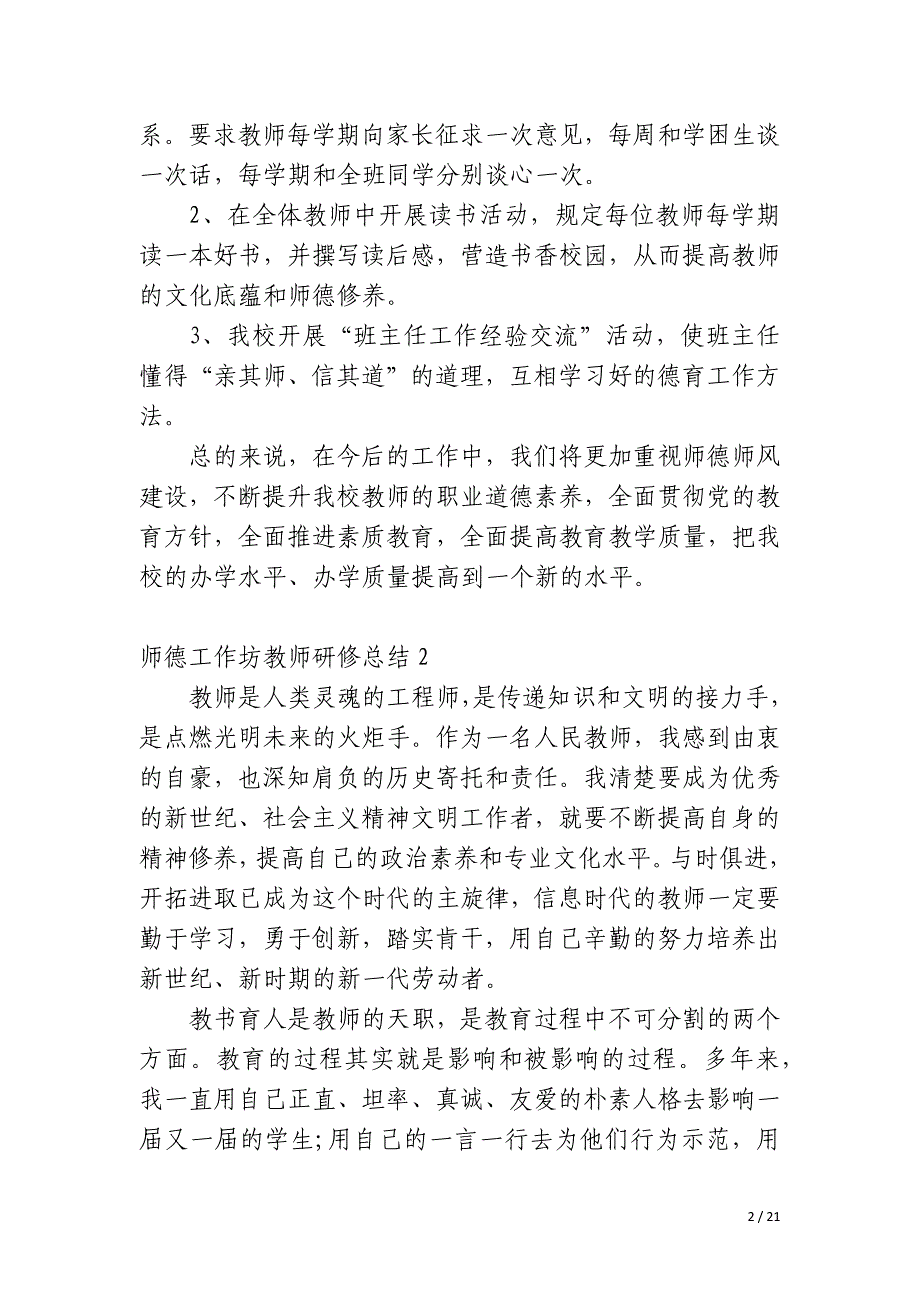 系。要求教师每学期向家长征求一次意见，每周和学困生谈
一次话，每学期和全班同学分别谈心一次。
2、在全体教师中开展读书活动，规定每位教师每学期
读一本好书，并撰写读后感，营造书香校园，从而提高教师
的文化底蕴和师德修养。
3、我校开展“班主任工作经验交流”活动，使班主任
懂得“亲其师、信其道”的道理，互相学习好的德育工作方
法。
总的来说，在今后的工作中，我们将更加重视师德师风
建设，不断提升我校教师的职业道德素养，全面贯彻党的教
育方针，全面推进素质教育，全面提高教育教学质量，把我
校的办学水平、办学质量提高到一个新的水平。
师德工作坊教师研修总结2
教师是人类灵魂的工程师,是传递知识和文明的接力手，
是点燃光明未来的火炬手。作为一名人民教师，我感到由衷
的自豪，也深知肩负的历史寄托和责任。我清楚要成为优秀
的新世纪、社会主义精神文明工作者，就要不断提高自身的
精神修养，提高自己的政治素养和专业文化水平。与时俱进，
开拓进取已成为这个时代的主旋律，信息时代的教师一定要
勤于学习，勇于创新，踏实肯干，用自己辛勤的努力培养出
新世纪、新时期的新一代劳动者。
教书育人是教师的天职，是教育过程中不可分割的两个
方面。教育的过程其实就是影响和被影响的过程。多年来，
我一直用自己正直、坦率、真诚、友爱的朴素人格去影响一
届又一届的学生;用自己的一言一行去为他们行为示范，用
2 / 21